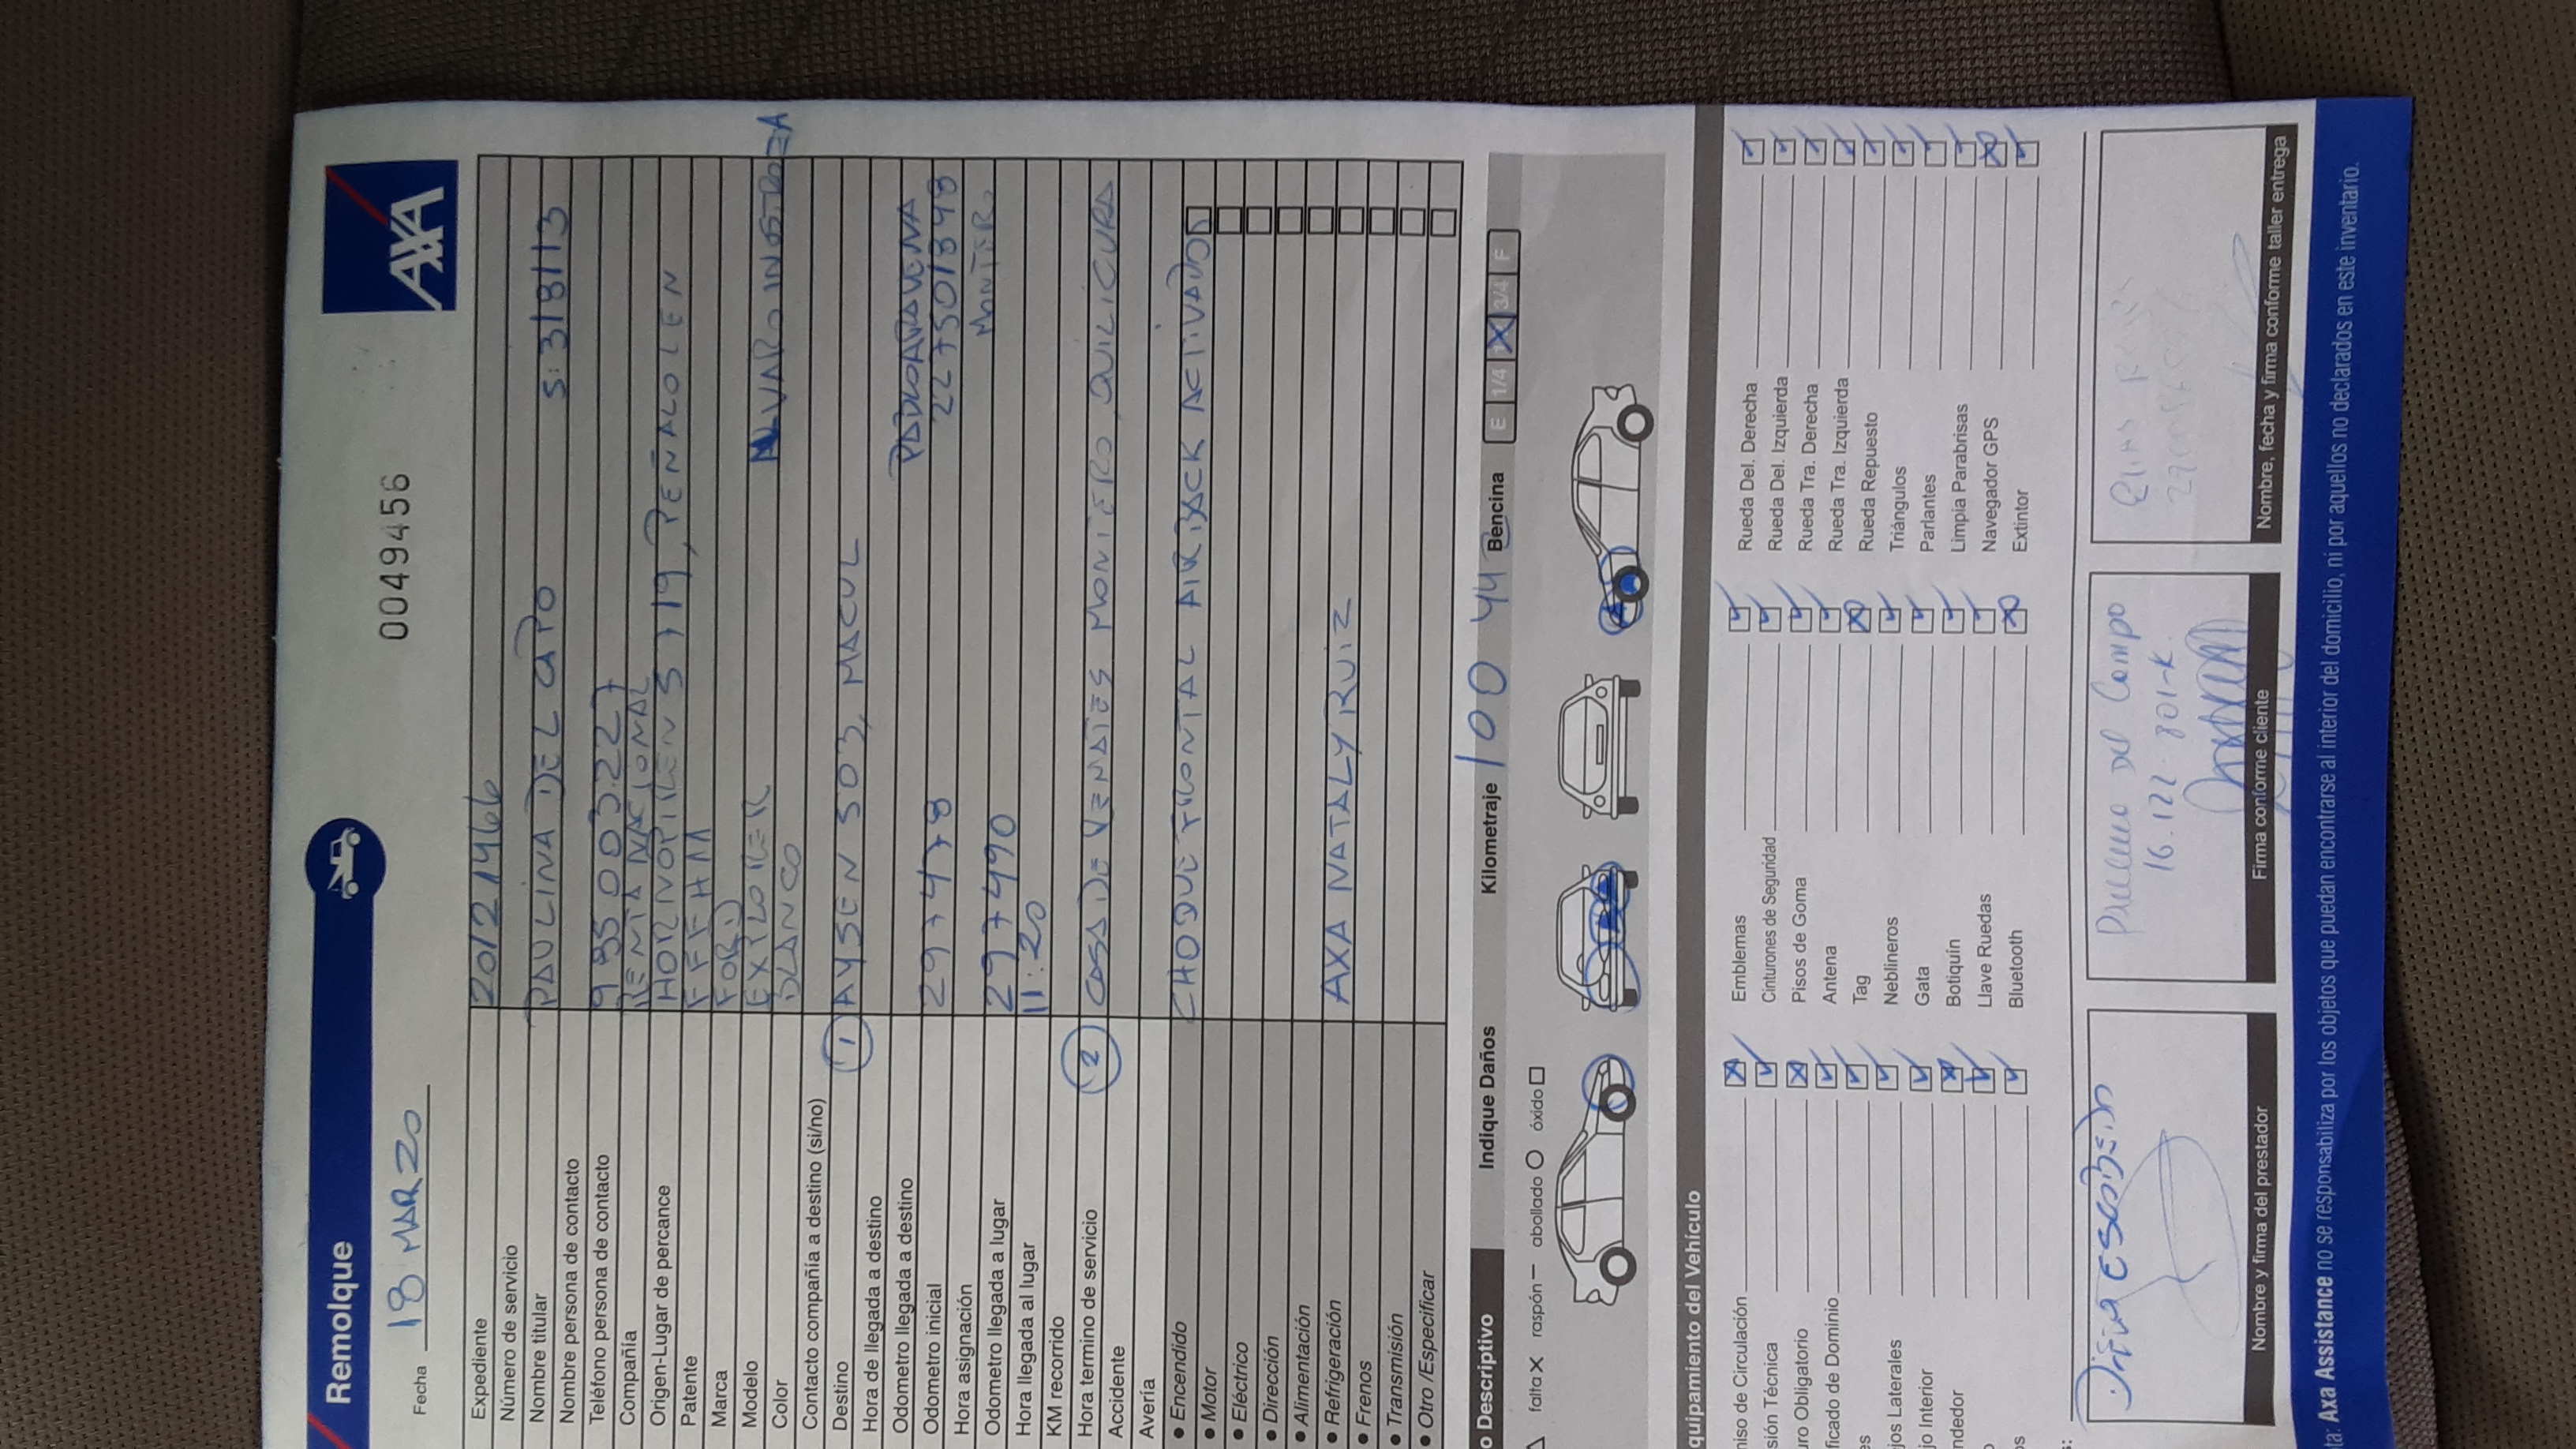 Remolque
AXA
Fecha 18 MAR 20
0049456
Expediente 20121466
Número de servicio
Nombre titular PAULINA DEL CAPO S: 318113
Nombre persona de contacto
Teléfono persona de contacto
Compañía RENTA NACIONAL
Origen-Lugar de percance HORNOPIREN 5719, PEÑALOLEN
Patente
Marca FORD
Modelo EXPLORER
Color BLANCO
Contacto compañía a destino (si/no)
Destino 1 AYSEN 503, MACUL
Hora de llegada a destino
Odometro llegada a destino
Odometro inicial 297478
Hora asignación
Odometro llegada a lugar 297490
Hora llegada al lugar 11:20
KM recorrido
Hora termino de servicio 2 MONTERO, QUILICURA
Accidente
Avería
• Encendido CHOQUE FRONTAL AIRBACK ACTIVADO
• Motor
• Eléctrico
• Dirección
• Alimentación
• Refrigeración AXA NATALY RUIZ
• Frenos
• Transmisión
• Otro /Especificar
o Descriptivo Indique Daños Kilometraje 100 447 Bencina E 1/4 X 3/4 F
falta X raspón – abollado O óxido □
quipamiento del Vehículo
miso de Circulación Emblemas Rueda Del. Derecha
sión Técnica Cinturones de Seguridad Rueda Del. Izquierda
uro Obligatorio Pisos de Goma Rueda Tra. Derecha
ificado de Dominio Antena Rueda Tra. Izquierda
es Tag Rueda Repuesto
jos Laterales Neblineros Triángulos
jo Interior Gata Parlantes
ndedor Botiquín Limpia Parabrisas
o Llave Ruedas Navegador GPS
os Bluetooth Extintor
s:
Del Campo
16.122.801-K
Nombre y firma del prestador
Firma conforme cliente
Nombre, fecha y firma conforme taller entrega
ta: Axa Assistance no se responsabiliza por los objetos que puedan encontrarse al interior del domicilio, ni por aquellos no declarados en este inventario.